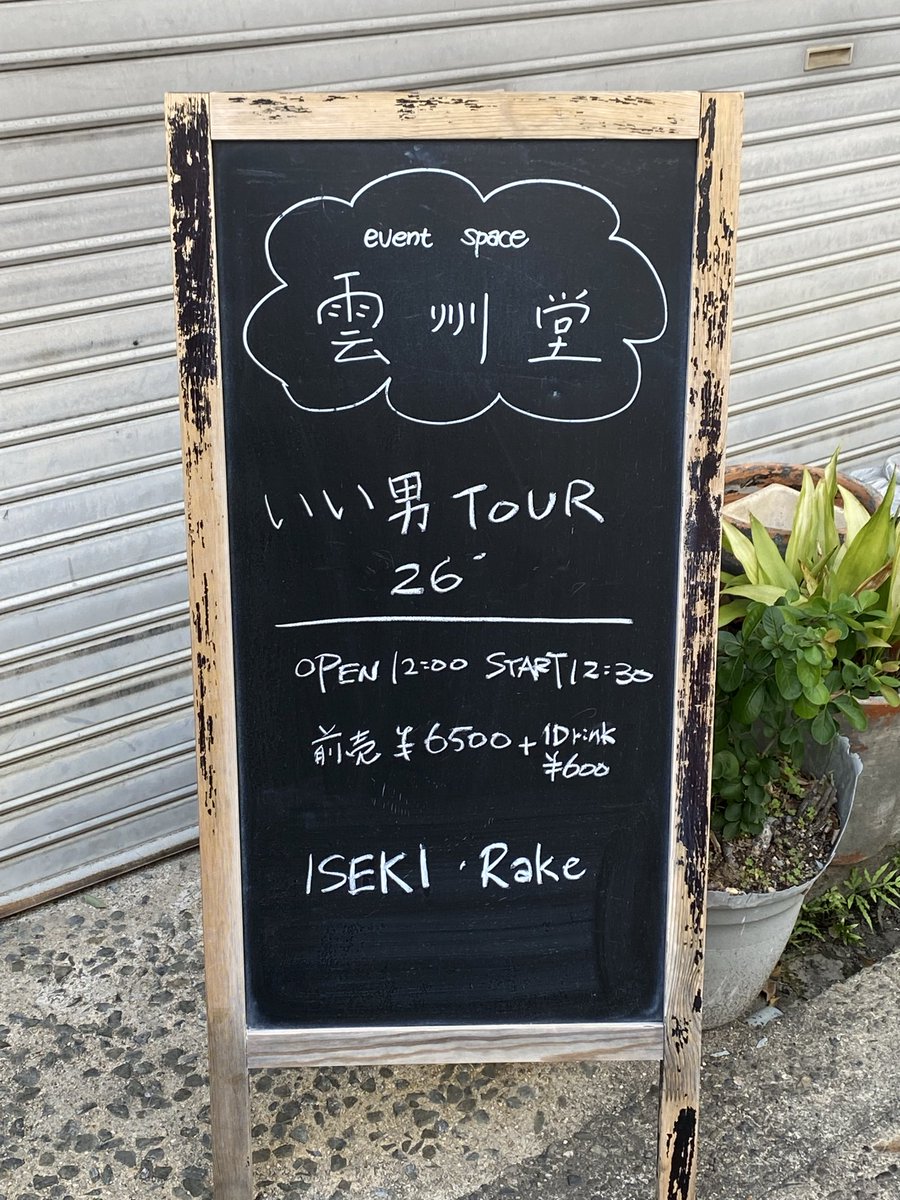 event space
雲州堂
いい男 TOUR
26'
OPEN 12:00 START 12:30
前売 ¥6500 + 1Drink
¥600
ISEKI・Rake